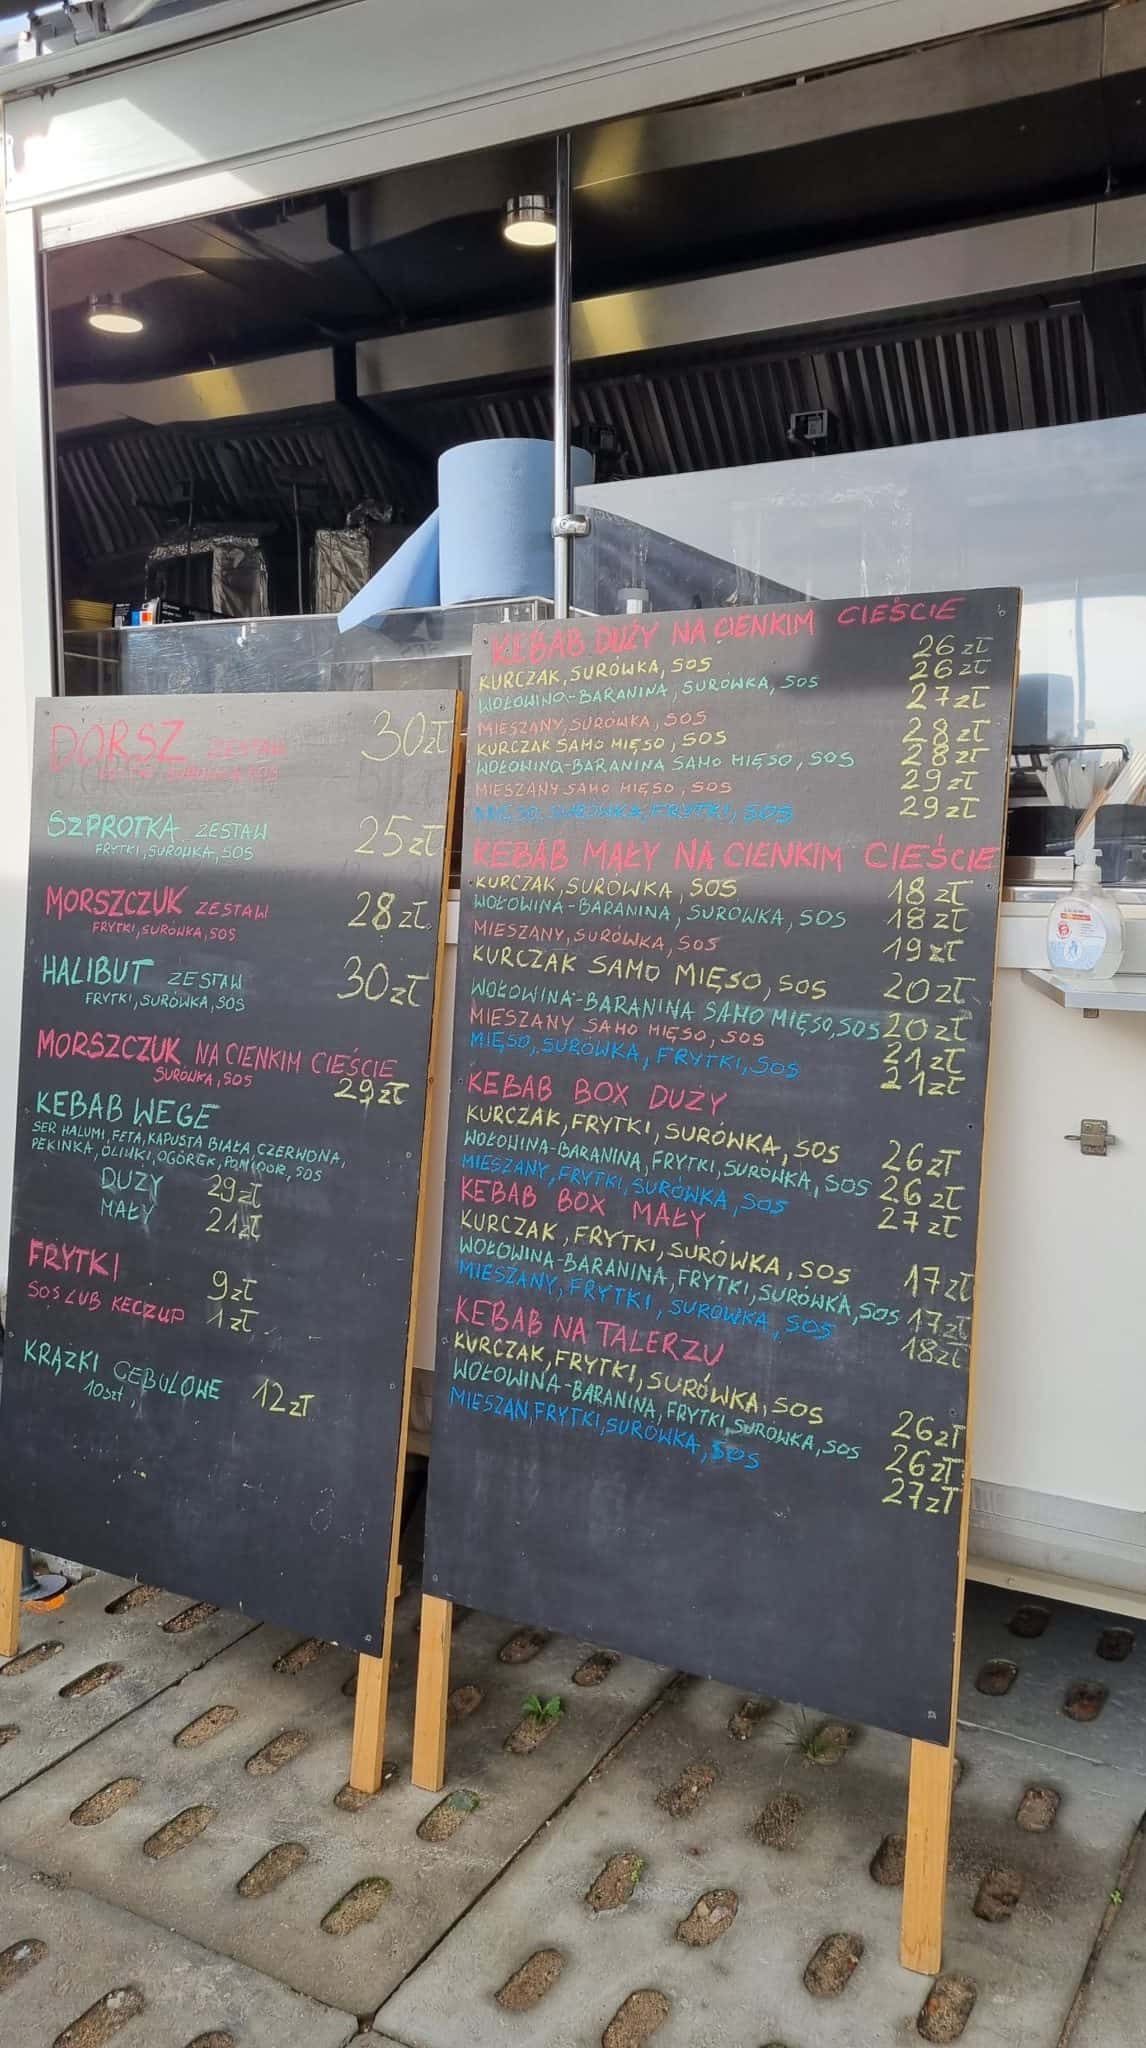 DORSZ ZESTAW 30zł
FRYTKI, SURÓWKA, SOS
SZPROTKA ZESTAW 25zł
FRYTKI, SURÓWKA, SOS
MORSZCZUK ZESTAW 28zł
FRYTKI, SURÓWKA, SOS
HALIBUT ZESTAW 30zł
FRYTKI, SURÓWKA, SOS
MORSZCZUK NA CIENKIM CIEŚCIE
SURÓWKA, SOS 29zł
KEBAB WEGE
SER HALUMI, FETA, KAPUSTA BIAŁA, CZERWONA,
PEKINKA, OLIWKI, OGÓREK, POMIDOR, SOS
DUŻY 29zł
MAŁY 21zł
FRYTKI 9zł
SOS LUB KECZUP 1zł
KRĄŻKI CEBULOWE 12zł
10szt,
KEBAB DUŻY NA CIENKIM CIEŚCIE
KURCZAK, SURÓWKA, SOS 26zł
WOŁOWINA-BARANINA, SURÓWKA, SOS 26zł
MIESZANY, SURÓWKA, SOS 27zł
KURCZAK SAMO MIĘSO, SOS 28zł
WOŁOWINA-BARANINA SAMO MIĘSO, SOS 28zł
MIESZANY SAMO MIĘSO, SOS 29zł
MIĘSO, SURÓWKA, FRYTKI, SOS 29zł
KEBAB MAŁY NA CIENKIM CIEŚCIE
KURCZAK, SURÓWKA, SOS 18zł
WOŁOWINA-BARANINA, SURÓWKA, SOS 18zł
MIESZANY, SURÓWKA, SOS 19zł
KURCZAK SAMO MIĘSO, SOS 20zł
WOŁOWINA-BARANINA SAMO MIĘSO, SOS 20zł
MIESZANY SAMO MIĘSO, SOS 21zł
MIĘSO, SURÓWKA, FRYTKI, SOS 21zł
KEBAB BOX DUŻY
KURCZAK, FRYTKI, SURÓWKA, SOS 26zł
WOŁOWINA-BARANINA, FRYTKI, SURÓWKA, SOS 26zł
MIESZANY, FRYTKI, SURÓWKA, SOS 27zł
KEBAB BOX MAŁY
KURCZAK, FRYTKI, SURÓWKA, SOS 17zł
WOŁOWINA-BARANINA, FRYTKI, SURÓWKA, SOS 17zł
MIESZANY, FRYTKI, SURÓWKA, SOS 18zł
KEBAB NA TALERZU
KURCZAK, FRYTKI, SURÓWKA, SOS 26zł
WOŁOWINA-BARANINA, FRYTKI, SURÓWKA, SOS 26zł
MIESZAN, FRYTKI, SURÓWKA, SOS 27zł